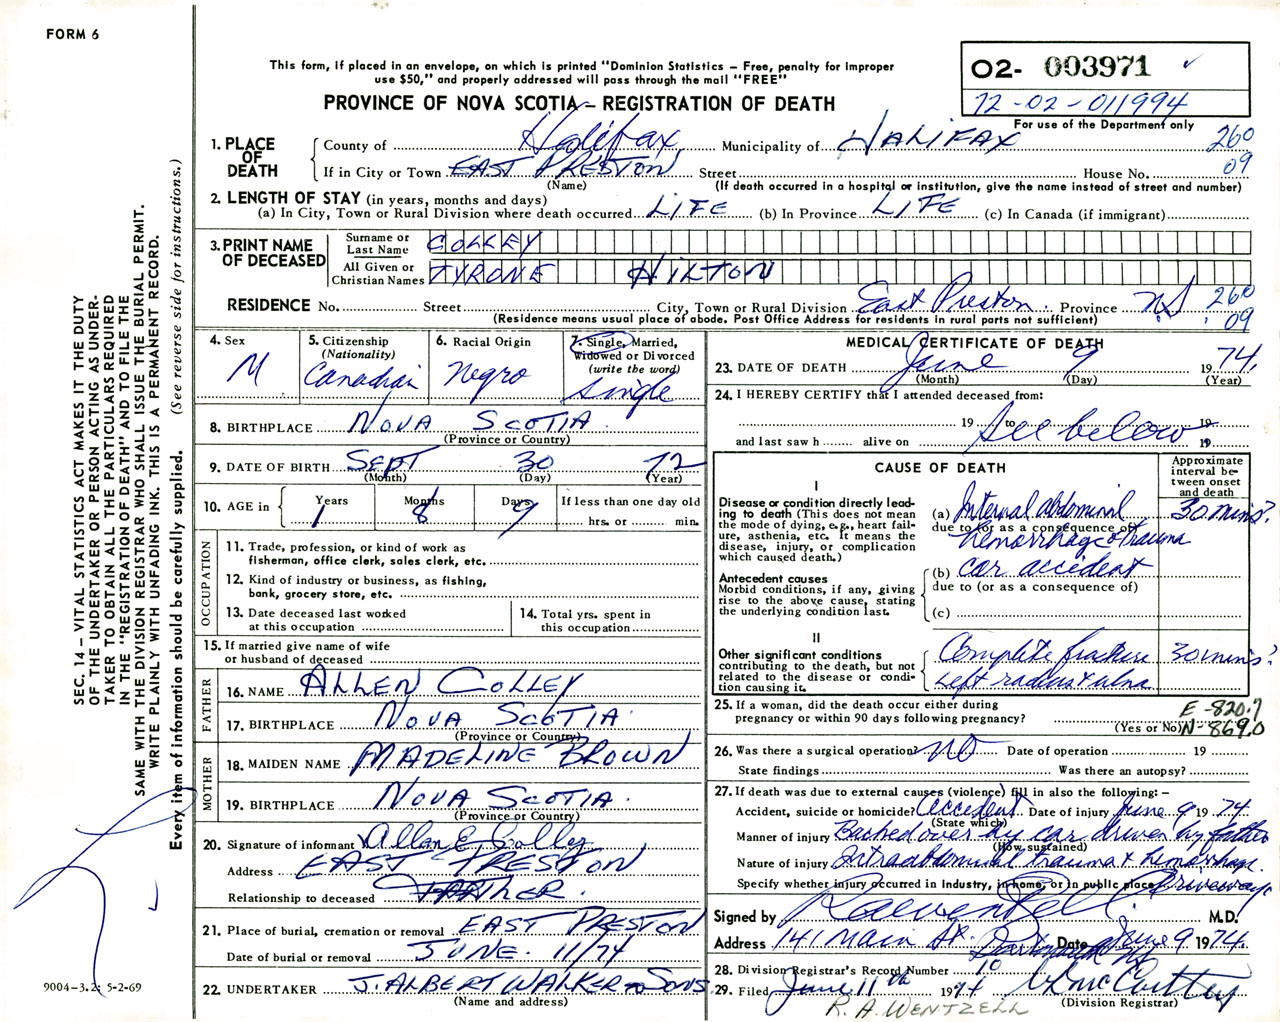 FORM 6
This form, if placed in an envelope, on which is printed "Dominion Statistics – Free, penalty for improper
use $50," and properly addressed will pass through the mail "FREE"
PROVINCE OF NOVA SCOTIA – REGISTRATION OF DEATH
02- 003971
72-02-011994
For use of the Department only
1. PLACE OF DEATH
County of Halifax Municipality of HALIFAX 260
If in City or Town EAST PRESTON Street House No. 09
(Name) (If death occurred in a hospital or institution, give the name instead of street and number)
2. LENGTH OF STAY (in years, months and days)
(a) In City, Town or Rural Division where death occurred LIFE (b) In Province LIFE (c) In Canada (if immigrant)
3. PRINT NAME OF DECEASED
Surname or Last Name COLLEY
All Given or Christian Names TYRONE HILTON
RESIDENCE No. Street City, Town or Rural Division East Preston Province N.S 260
(Residence means usual place of abode. Post Office Address for residents in rural parts not sufficient) 09
4. Sex M
5. Citizenship (Nationality) Canadian
6. Racial Origin Negro
7. Single, Married, Widowed or Divorced (write the word) Single
8. BIRTHPLACE NOVA SCOTIA
(Province or Country)
9. DATE OF BIRTH SEPT 30 72
(Month) (Day) (Year)
10. AGE in Years 1 Months 8 Days 9 If less than one day old
hrs. or min.
OCCUPATION
11. Trade, profession, or kind of work as
fisherman, office clerk, sales clerk, etc.
12. Kind of industry or business, as fishing,
bank, grocery store, etc.
13. Date deceased last worked
at this occupation
14. Total yrs. spent in
this occupation
15. If married give name of wife
or husband of deceased
FATHER
16. NAME ALLEN COLLEY
17. BIRTHPLACE NOVA SCOTIA
(Province or Country)
MOTHER
18. MAIDEN NAME MADELINE BROWN
19. BIRTHPLACE NOVA SCOTIA
(Province or Country)
20. Signature of informant Allan E. Colley
Address EAST PRESTON
Relationship to deceased FATHER.
21. Place of burial, cremation or removal EAST PRESTON
Date of burial or removal JUNE. 11/74
22. UNDERTAKER J. ALBERT WALKER & SONS
(Name and address)
MEDICAL CERTIFICATE OF DEATH
23. DATE OF DEATH June 9 1974.
(Month) (Day) (Year)
24. I HEREBY CERTIFY that I attended deceased from:
19 to 19
and last saw h alive on See below 19
CAUSE OF DEATH
Approximate interval between onset and death
I
Disease or condition directly leading to death (This does not mean the mode of dying, e.g., heart failure, asthenia, etc. It means the disease, injury, or complication which caused death.)
(a) Internal abdominal 30 mins?
due to (or as a consequence of)
hemorrhage & trauma
Antecedent causes
Morbid conditions, if any, giving rise to the above cause, stating the underlying condition last.
(b) car accident
due to (or as a consequence of)
(c)
II
Other significant conditions
contributing to the death, but not related to the disease or condition causing it.
Complete fracture 30 mins?
left radius & ulna
25. If a woman, did the death occur either during
pregnancy or within 90 days following pregnancy?
(Yes or No)
E-820.7
N-869.0
26. Was there a surgical operation? NO Date of operation 19
State findings Was there an autopsy?
27. If death was due to external causes (violence) fill in also the following:–
Accident, suicide or homicide? Accident Date of injury June 9 1974.
(State which)
Manner of injury Backed over by car driven by father
(How sustained)
Nature of injury Intraabdominal trauma & hemorrhage.
Specify whether injury occurred in industry, in home, or in public place Driveway
Signed by M.D.
Address 141 Main St. Dartmouth NS Date June 9 1974.
28. Division Registrar's Record Number 10
29. Filed June 11th 1974
(Division Registrar)
R. A. WENTZELL
SEC. 14 – VITAL STATISTICS ACT MAKES IT THE DUTY
OF THE UNDERTAKER OR PERSON ACTING AS UNDER-
TAKER TO OBTAIN ALL THE PARTICULARS REQUIRED
IN THE "REGISTRATION OF DEATH" AND TO FILE THE
SAME WITH THE DIVISION REGISTRAR WHO SHALL ISSUE THE BURIAL PERMIT.
WRITE PLAINLY WITH UNFADING INK. THIS IS A PERMANENT RECORD.
Every item of information should be carefully supplied. (See reverse side for instructions.)
9004-3.2: 5-2-69